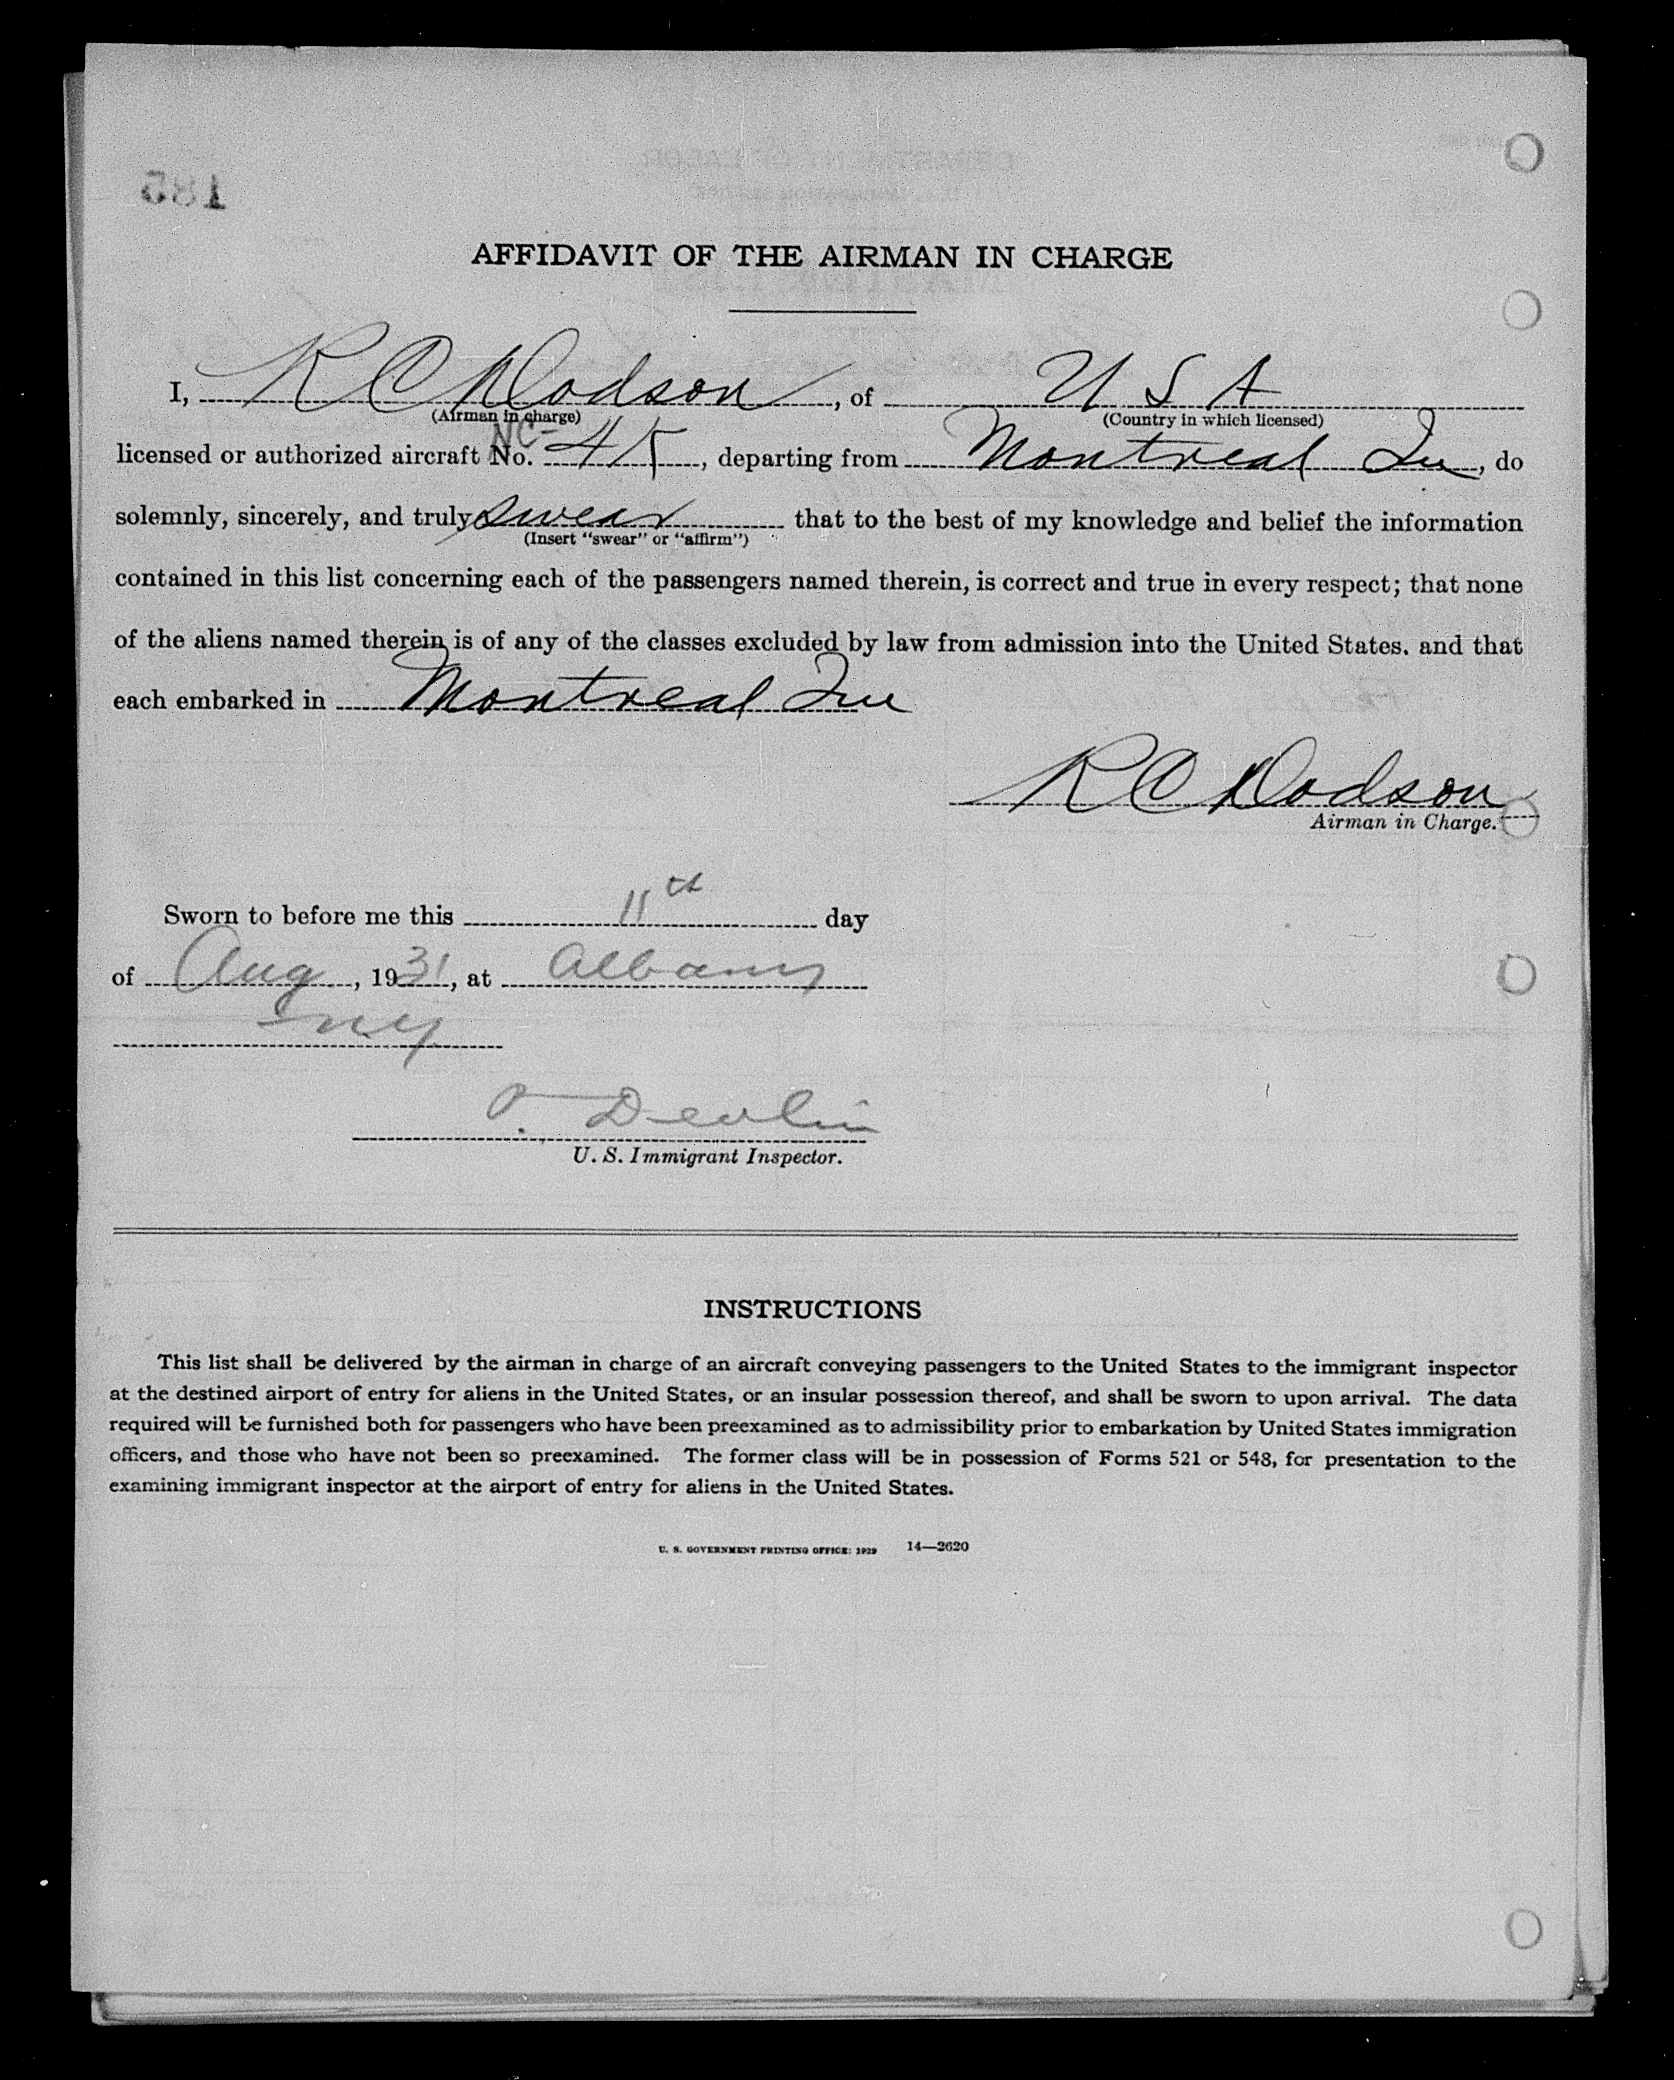 185
AFFIDAVIT OF THE AIRMAN IN CHARGE
I, R C Dodson, of U S A
(Airman in charge) (Country in which licensed)
NC-
licensed or authorized aircraft No. 45, departing from Montreal Qu, do
solemnly, sincerely, and truly swear that to the best of my knowledge and belief the information
(Insert "swear" or "affirm")
contained in this list concerning each of the passengers named therein, is correct and true in every respect; that none
of the aliens named therein is of any of the classes excluded by law from admission into the United States. and that
each embarked in Montreal Qu
R C Dodson
Airman in Charge.
Sworn to before me this 11th day
of Aug, 1931, at Albany
NY
Devlin
U. S. Immigrant Inspector.
INSTRUCTIONS
This list shall be delivered by the airman in charge of an aircraft conveying passengers to the United States to the immigrant inspector
at the destined airport of entry for aliens in the United States, or an insular possession thereof, and shall be sworn to upon arrival. The data
required will be furnished both for passengers who have been preexamined as to admissibility prior to embarkation by United States immigration
officers, and those who have not been so preexamined. The former class will be in possession of Forms 521 or 548, for presentation to the
examining immigrant inspector at the airport of entry for aliens in the United States.
U. S. GOVERNMENT PRINTING OFFICE: 1929 14—2620